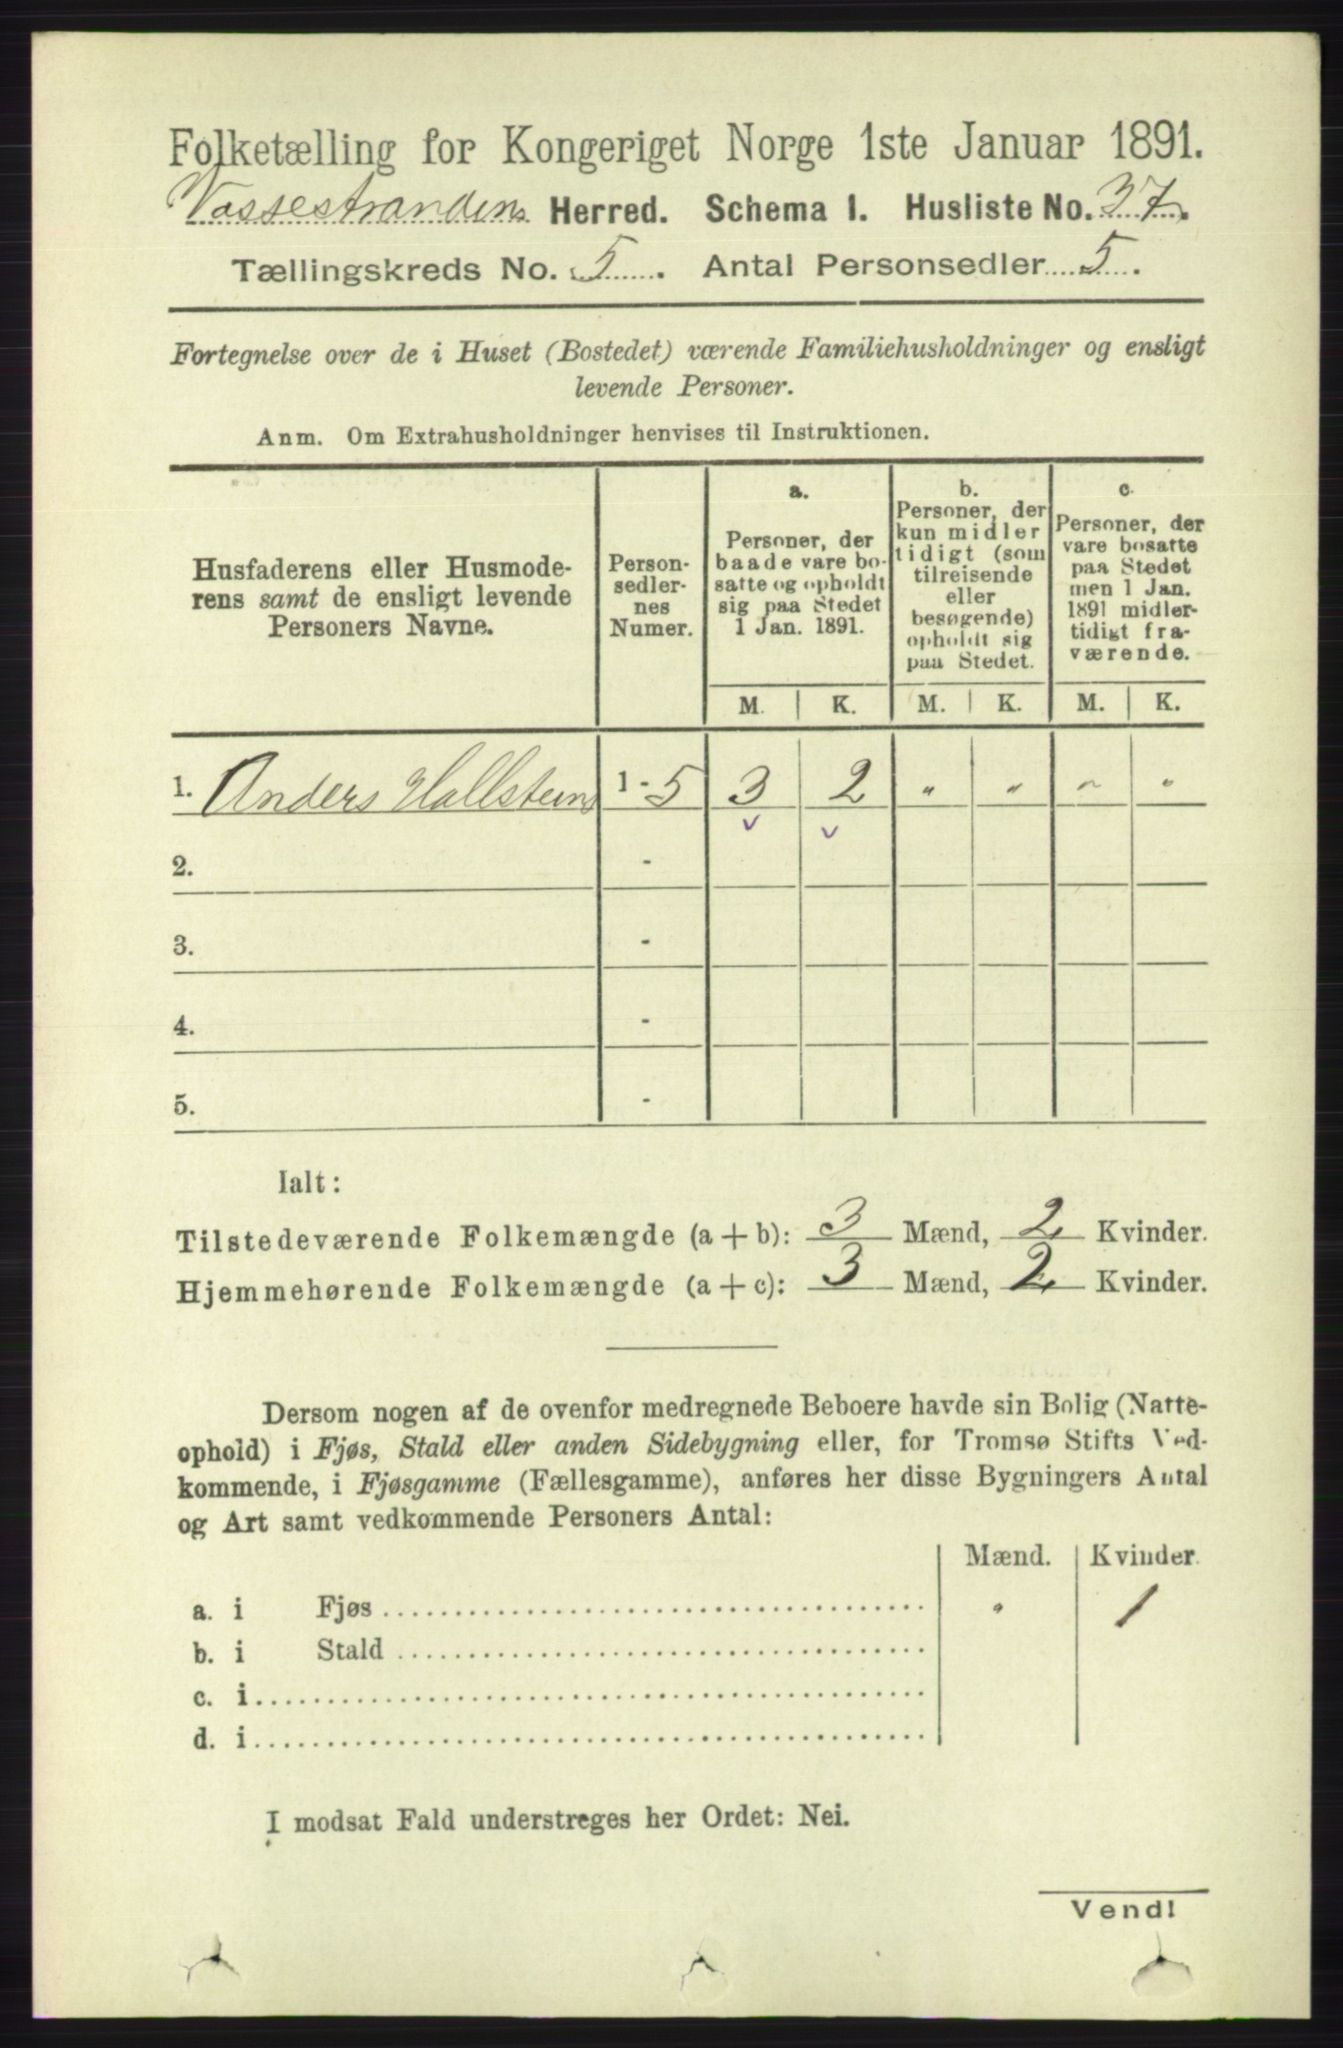 Folketælling for Kongeriget Norge 1ste Januar 1891.
Vossestrandens Herred. Schema 1. Husliste No. 37.
Tællingskreds No. 5. Antal Personsedler 5.
Fortegnelse over de i Huset (Bostedet) værende Familiehusholdninger og ensligt
levende Personer.
Anm. Om Extrahusholdninger henvises til Instruktionen.
Husfaderens eller Husmode-
rens samt de ensligt levende
Personers Navne.
Person-
sedler-
nes
Numer.
a.
Personer, der
baade vare bo-
satte og opholdt
sig paa Stedet
1 Jan. 1891.
b.
Personer, der
kun midler
tidigt (som
tilreisende
eller
besøgende)
opholdt sig
paa Stedet.
c.
Personer, der
vare bosatte
paa Stedet
men 1 Jan.
1891 midler-
tidigt fra-
værende.
M. K. M. K. M. K.
1. Anders Hallsteins 1-5 3 2 " " " "
v v
2. -
3. -
4. -
5. -
Ialt:
Tilstedeværende Folkemængde (a+b): 3 Mænd, 2 Kvinder.
Hjemmehørende Folkemængde (a+c): 3 Mænd, 2 Kvinder.
Dersom nogen af de ovenfor medregnede Beboere havde sin Bolig (Natte-
ophold) i Fjøs, Stald eller anden Sidebygning eller, for Tromsø Stifts Ved-
kommende, i Fjøsgamme (Fællesgamme), anføres her disse Bygningers Antal
og Art samt vedkommende Personers Antal:
Mænd. Kvinder.
a. i Fjøs " 1
b. i Stald
c. i
d. i
I modsat Fald understreges her Ordet: Nei.
Vend!